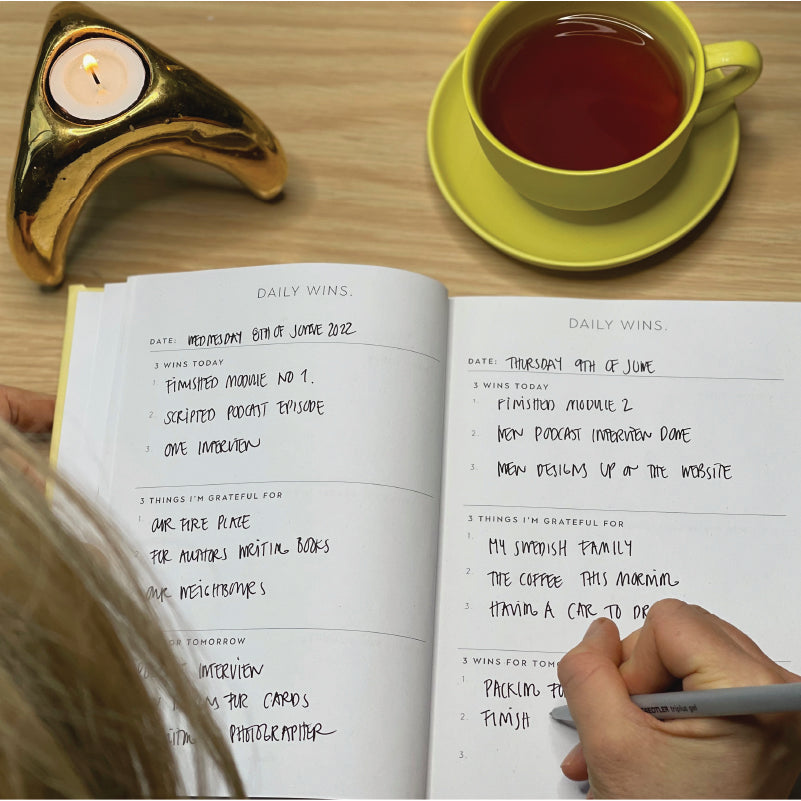 DAILY WINS.
DATE: WEDNESDAY 8TH OF JUNE 2022
3 WINS TODAY
1. FINISHED MODULE NO 1.
2. SCRIPTED PODCAST EPISODE
3. ONE INTERVIEW
3 THINGS I'M GRATEFUL FOR
1. OUR FIRE PLACE
2. FOR AUTHORS WRITING BOOKS
OUR NEIGHBOURS
FOR TOMORROW
INTERVIEW
FOR CARDS
PHOTOGRAPHER
DAILY WINS.
DATE: THURSDAY 9TH OF JUNE
3 WINS TODAY
1. FINISHED MODULE 2
2. NEW PODCAST INTERVIEW DONE
3. NEW DESIGNS UP ON THE WEBSITE
3 THINGS I'M GRATEFUL FOR
1. MY SWEDISH FAMILY
2. THE COFFEE THIS MORNING
3. HAVING A CAR TO DR
3 WINS FOR TOM
1. PACKING FO
2. FINISH
3.
STAEDTLER triplus gel